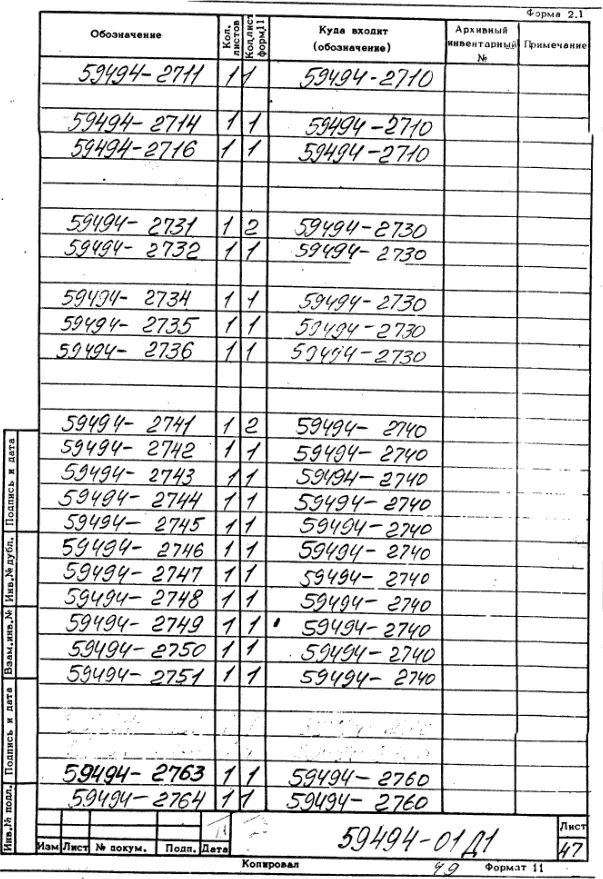 Форма 2.1
Обозначение Кол. листов Кол.лист форм.11 Куда входит (обозначение) Архивный инвентарный № Примечание
59494-2711 1 1 59494-2710
59494-2714 1 1 59494-2710
59494-2716 1 1 59494-2710
59494-2731 1 2 59494-2730
59494-2732 1 1 59494-2730
59494-2734 1 1 59494-2730
59494-2735 1 1 59494-2730
59494-2736 1 1 59494-2730
59494-2741 1 2 59494-2740
59494-2742 1 1 59494-2740
59494-2743 1 1 59494-2740
59494-2744 1 1 59494-2740
59494-2745 1 1 59494-2740
59494-2746 1 1 59494-2740
59494-2747 1 1 59494-2740
59494-2748 1 1 59494-2740
59494-2749 1 1 59494-2740
59494-2750 1 1 59494-2740
59494-2751 1 1 59494-2740
59494-2763 1 1 59494-2760
59494-2764 1 1 59494-2760
Подпись и дата
Инв.№ дубл.
Взам.инв.№
Подпись и дата
Инв.№ подл.
Изм Лист № докум. Подп. Дата
59494-01Д1
Лист
47
Копировал 49 Формат 11